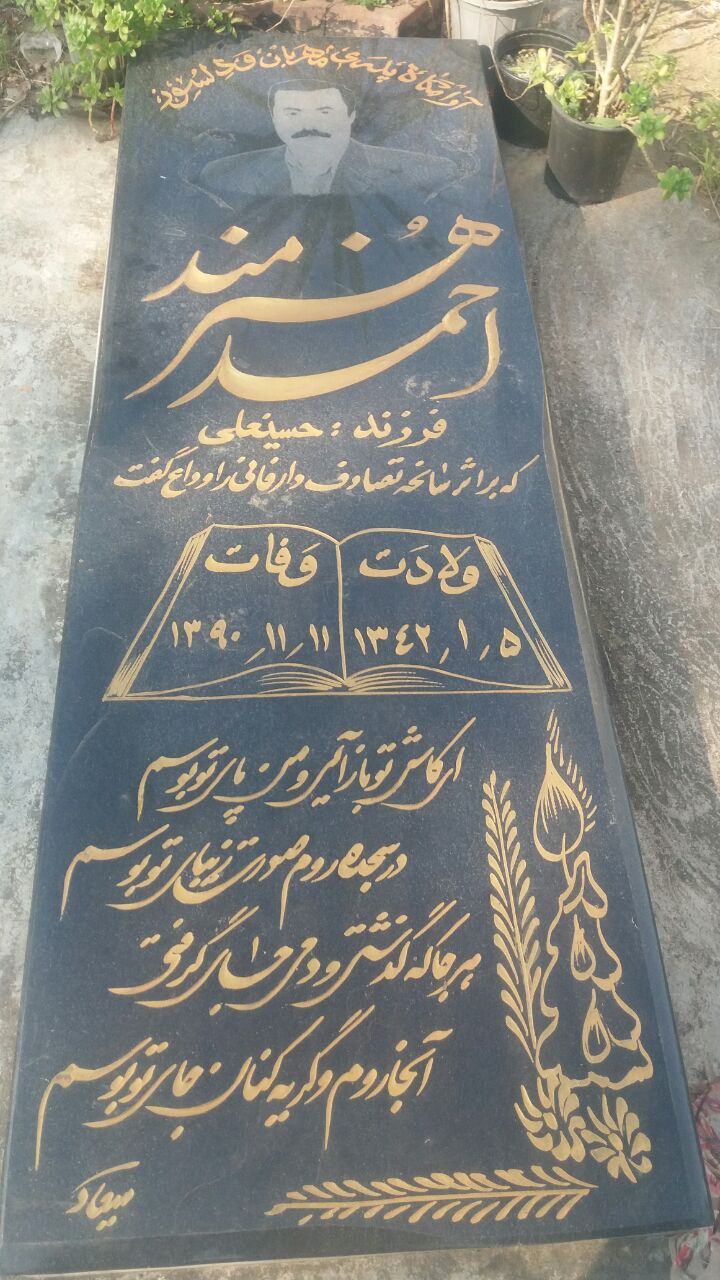 آرامگاه پدری مهربان و دلسوز
هنرمند
احمد
فرزند : حسینعلی
که بر اثر سانحه تصادف دار فانی را وداع گفت
ولادت وفات
۱۳۴۲٫۱٫۵ ۱۳۹۰٫۱۱٫۱۱
ای کاش تو باز آیی و من پای تو بوسم
در سجده روم صورت زیبای تو بوسم
هر جا که گذشتی و دمی جای گرفتی
آنجا روم و گریه کنان جای تو بوسم